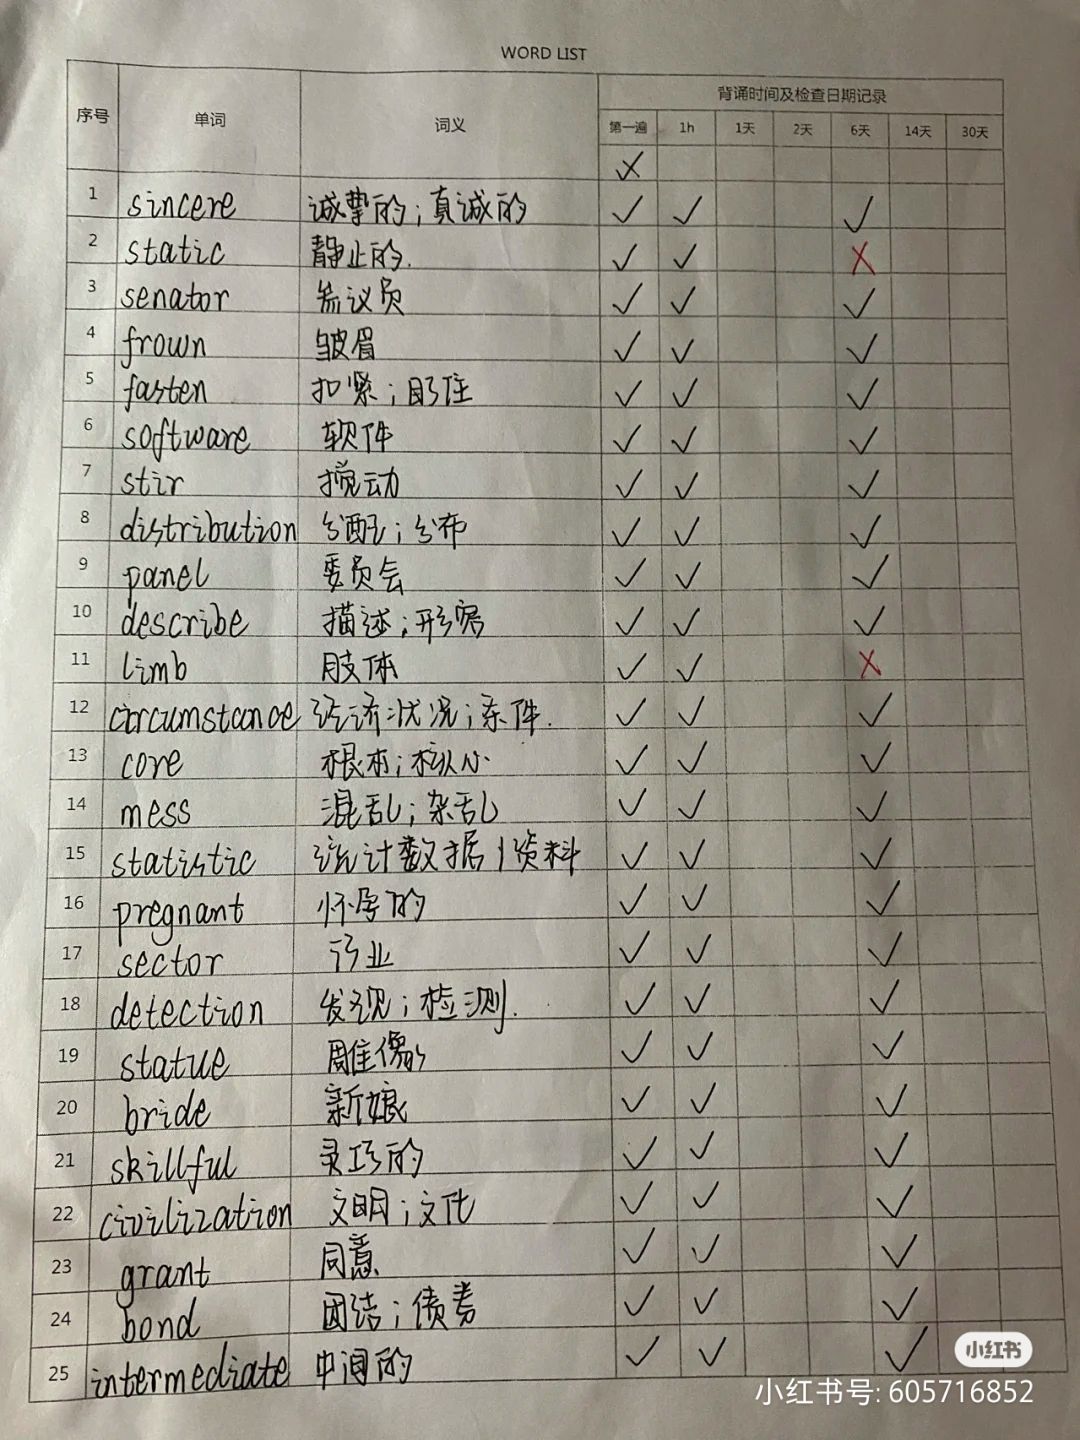 WORD LIST
序号 单词 词义 背诵时间及检查日期记录
第一遍 1h 1天 2天 6天 14天 30天
✓✗
1 sincere 诚挚的；真诚的 ✓ ✓ ✓
2 static 静止的. ✓ ✓ ✗
3 senator 参议员 ✓ ✓ ✓
4 frown 皱眉 ✓ ✓ ✓
5 fasten 扣紧； ✓ ✓ ✓
6 software 软件 ✓ ✓ ✓
7 stir 搅动 ✓ ✓ ✓
8 distribution 分配；分布 ✓ ✓ ✓
9 panel 委员会 ✓ ✓ ✓
10 describe 描述；形容 ✓ ✓ ✓
11 limb 肢体 ✓ ✓ ✗
12 circumstance 经济状况；条件. ✓ ✓ ✓
13 core 根本；核心 ✓ ✓ ✓
14 mess 混乱；杂乱 ✓ ✓ ✓
15 statistic 统计数据/资料 ✓ ✓ ✓
16 pregnant 怀孕的 ✓ ✓ ✓
17 sector 行业 ✓ ✓ ✓
18 detection 发现；检测. ✓ ✓ ✓
19 statue 雕像 ✓ ✓ ✓
20 bride 新娘 ✓ ✓ ✓
21 skillful 灵巧的 ✓ ✓ ✓
22 civilization 文明；文化 ✓ ✓ ✓
23 grant 同意 ✓ ✓ ✓
24 bond 团结；债券 ✓ ✓ ✓
25 intermediate 中间的 ✓ ✓ ✓
小红书
小红书号: 605716852